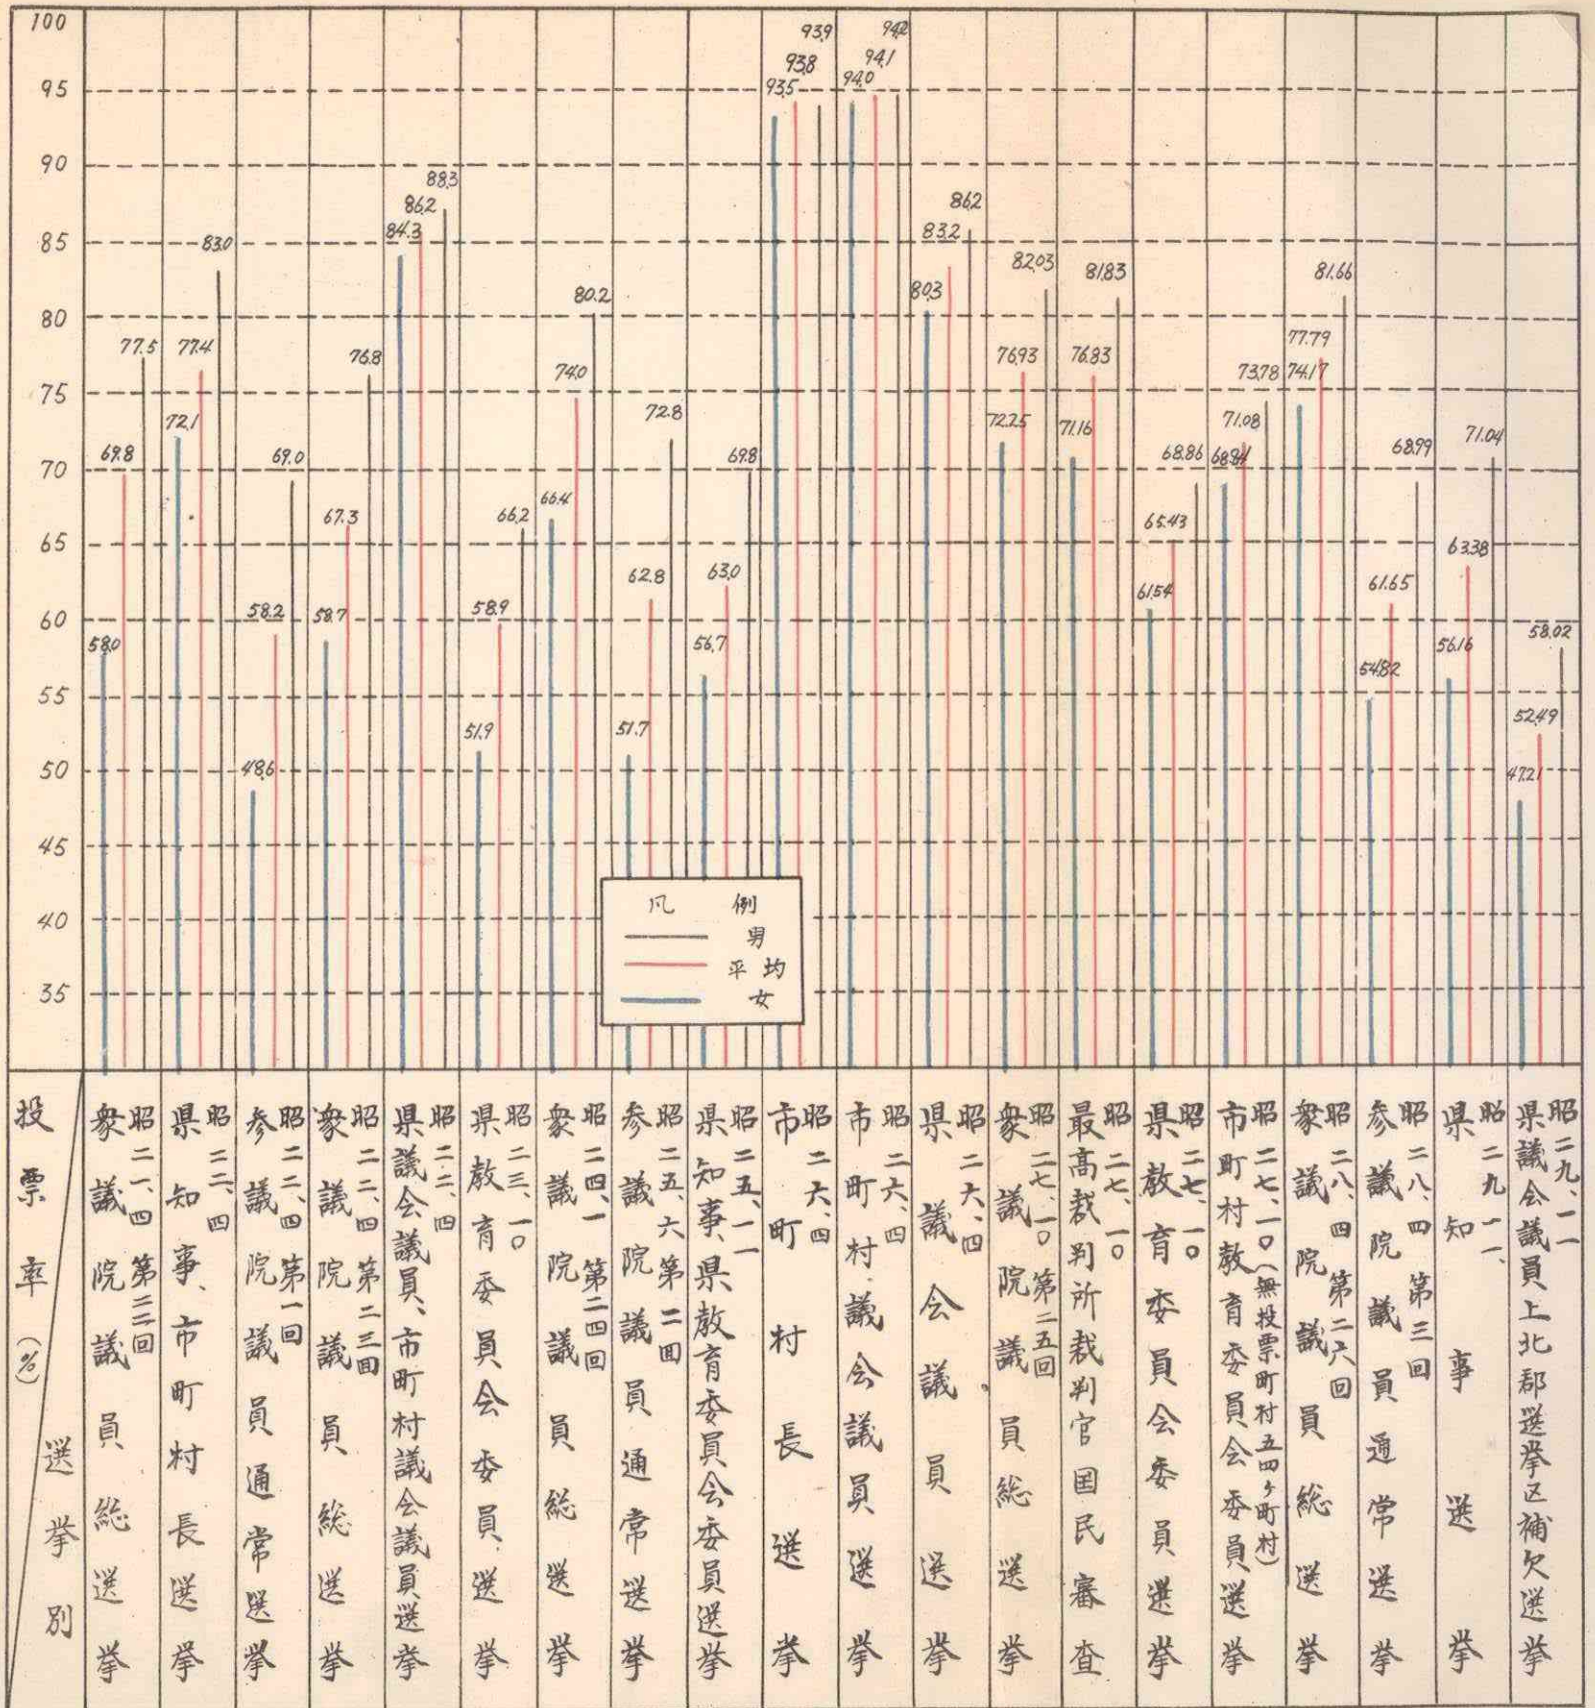 100
95
90
85
80
75
70
65
60
55
50
45
40
35
58.0
69.8
77.5
72.1
77.4
83.0
48.6
58.2
69.0
58.7
67.3
76.8
84.3
86.2
88.3
51.9
58.9
66.2
66.4
74.0
80.2
51.7
62.8
72.8
56.7
63.0
69.8
93.5
93.8
93.9
94.0
94.1
94.2
80.3
83.2
86.2
72.25
76.93
82.03
71.16
76.83
81.83
61.54
65.43
68.86
71.08
73.78
74.17
77.79
81.66
54.82
61.65
68.99
56.16
63.38
71.04
47.21
52.49
58.02
凡例
男
平均
女
投票率(%)
選挙別
昭二一、四 第二二回
衆議院議員総選挙
昭二二、四
県知事、市町村長選挙
昭二二、四 第一回
参議院議員通常選挙
昭二二、四 第二三回
衆議院議員総選挙
昭二二、四
県議会議員、市町村議会議員選挙
昭二三、一〇
県教育委員会委員選挙
昭二四、一 第二四回
衆議院議員総選挙
昭二五、六 第二回
参議院議員通常選挙
昭二五、一一
県知事、県教育委員会委員選挙
昭二六、四
市町村長選挙
昭二六、四
市町村議会議員選挙
昭二六、四
県議会議員選挙
昭二七、一〇 第二五回
衆議院議員総選挙
昭二七、一〇
最高裁判所裁判官国民審査
昭二七、一〇
県教育委員会委員選挙
昭二七、一〇(無投票町村五四ヶ町村)
市町村教育委員会委員選挙
昭二八、四 第二六回
衆議院議員総選挙
昭二八、四 第三回
参議院議員通常選挙
昭二九、一一、
県知事選挙
昭二九、一一
県議会議員上北郡選挙区補欠選挙